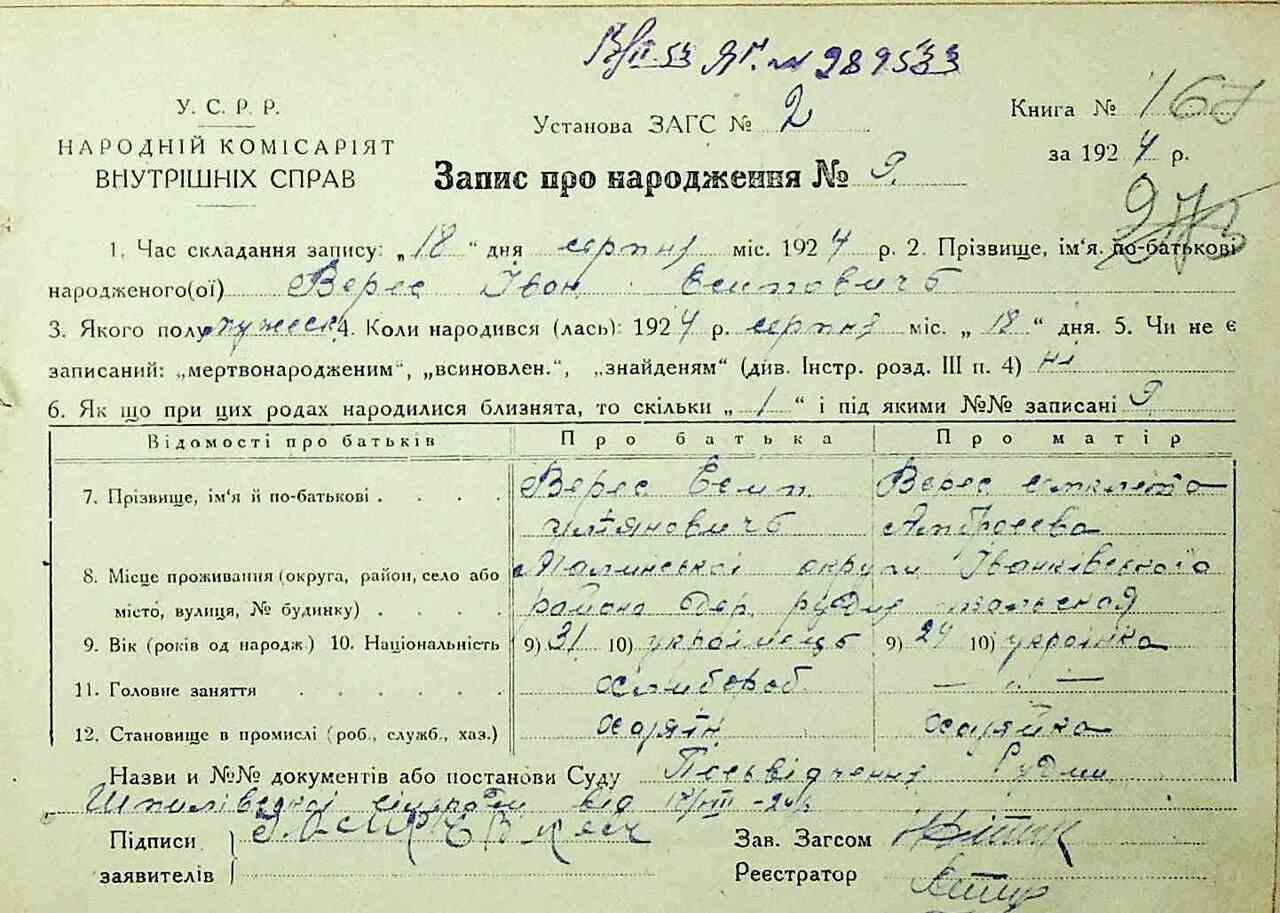 289533
У. С. Р. Р.
НАРОДНІЙ КОМІСАРІЯТ
ВНУТРІШНІХ СПРАВ
Установа ЗАГС № 2
Книга № 167
за 1924 р.
Запис про народження № 9.
273
1. Час складання запису: „18“ дня серпня міс. 1924 р. 2. Прізвище, ім'я. по-батькові
народженого(ої) Верес Іван Есиповичь
3. Якого полу мужеск 4. Коли народився (лась): 1924 р. серпня міс. „18“ дня. 5. Чи не є
записаний: „мертвонародженим“, „всиновлен.“, „знайденям“ (див. Інстр. розд. III п. 4) ні
6. Як що при цих родах народилися близнята, то скільки „1“ і під якими №№ записані 9.
Відомості про батьків Про батька Про матір
7. Прізвище, ім'я й по-батькові . . . . Верес Есип Верес
Амбросева
8. Місце проживання (округа, район, село або округи Іванківського
місто, вулиця, № будинку) . . . . района дер. рудня тальская
9. Вік (років од народж) 10. Національність 9) 31 10) українець 9) 24 10) українка
11. Головне заняття . . . . . . хлибороб — „ —
12. Становище в промислі (роб., служб., хаз.) хазяїн хазяйка
Назви и №№ документів або постанови Суду Посьвідчення Рудни
Шпилівської сільради від 18/VIII-24 р.
Підписи
заявителів
Зав. Загсом
Реєстратор